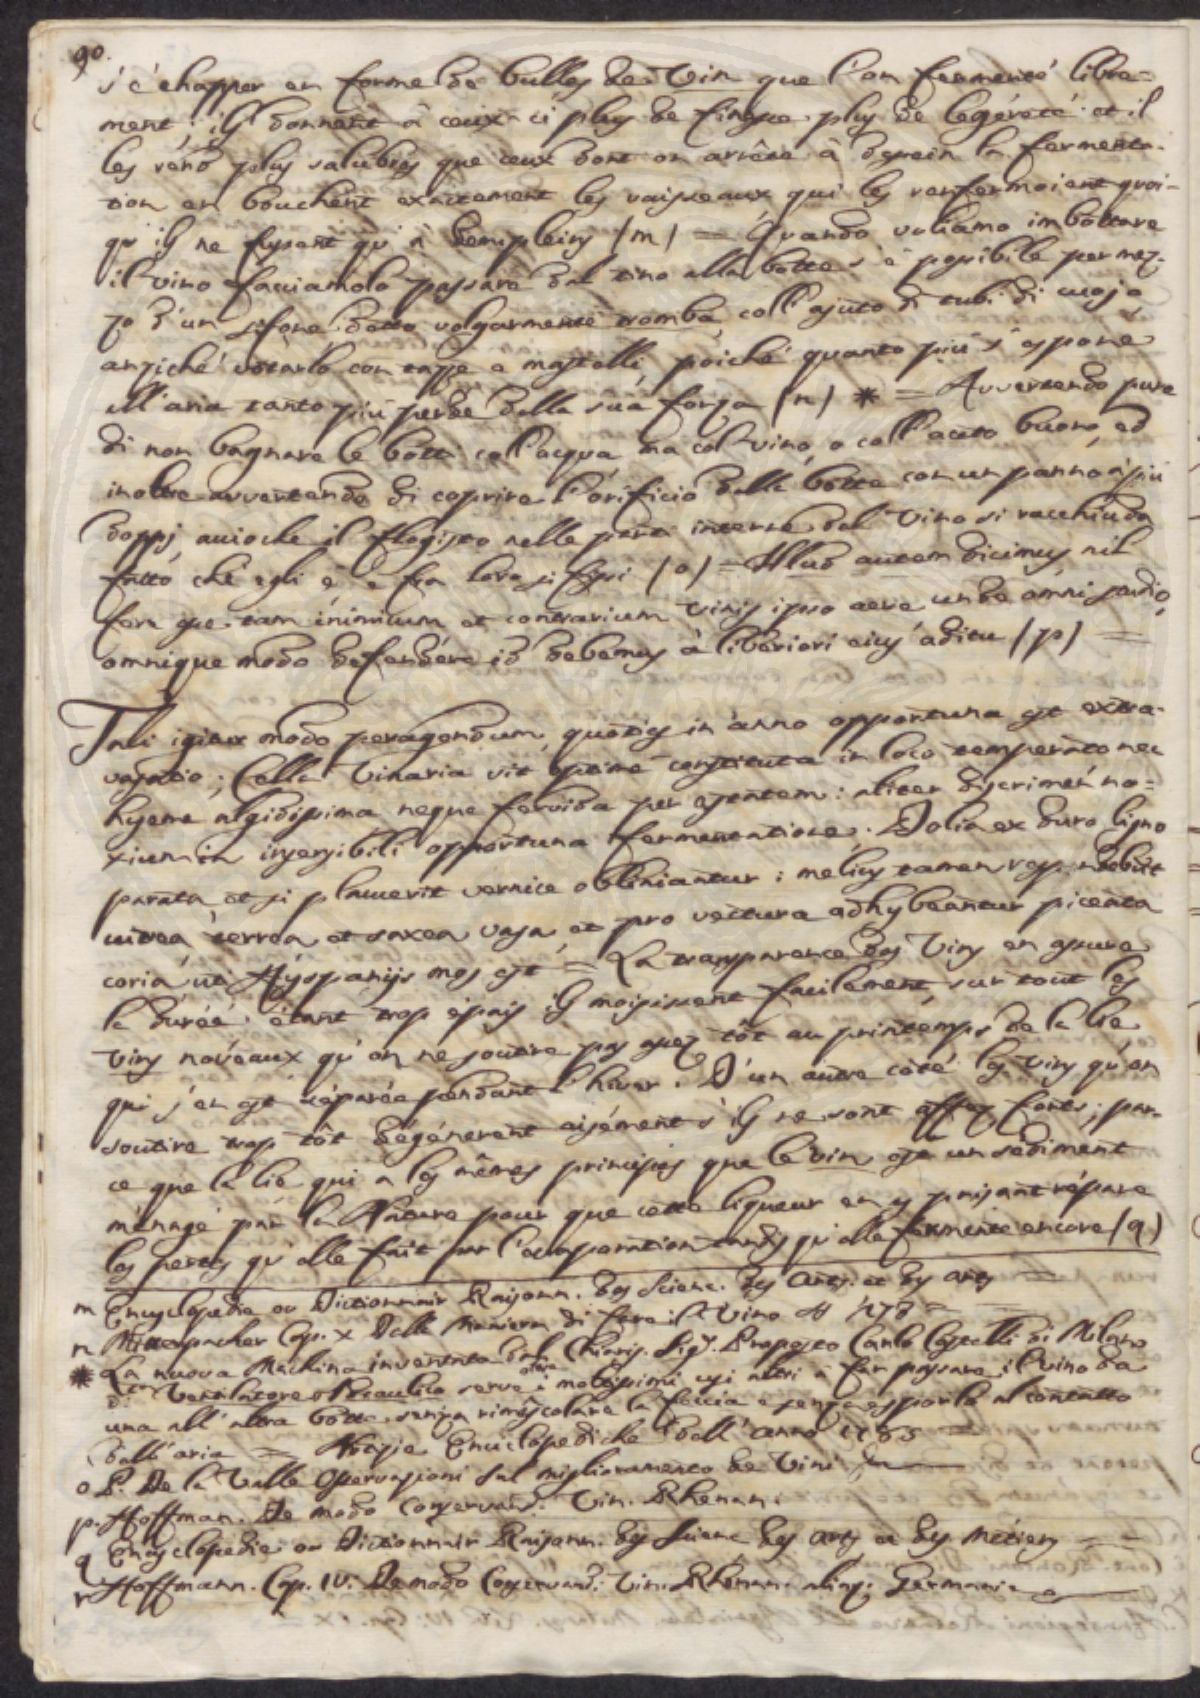 90.
s'échapper en forme de bulles des Vin que l'on fermenté libre=
ment; ils donnent à ceux-ci plus de finesse plus de legéreté et il
les rend plus salubres que ceux dont on arrête à dessein la fermenta-
tion en bouchent exactement les vaisseaux qui les renfermoient quoi-
qu'ils ne fussent qu'à demi pleins (m) = Quando vogliamo imbottare
il vino facciamolo passare dal tino alla botte s'è possibile per mez-
zo d'un sifone detto volgarmente tromba, coll'ajuto di tubi di cuojo
anziché votarlo con tazze e mastelli, poiché quanto più s'espone
all'aria tanto più perde della sua forza (n) * = Avvertendo pure
di non bagnare le botti coll'acqua, ma col vino, o coll'aceto buono, ed
inoltre avvertendo di coprire l'orificio della botte con un panno à più
doppj acciochè il flogisto nelle parti interne del Vino si racchiuda
fatto che egli è e fra loro si fissi (o) = Illud autem dicimus nil
fere esse tam inimicum et contrarium Vinis ipso aere unde omni studio,
omnique modo defendere id debemus à liberiori ejus aditu (p) =
Tali igitur modo peragendum, quoties in anno opportuna est extra-
vasatio; Cella Vinaria sit optime constituta in loco temperato nec
hyeme algidissima neque fervida per aestatem: aliter discrimen no=
xium in insensibili opportuna fermentatione. Dolia ex duro ligno
parata et si placuerit vernice obliniantur; melius tamen respondebunt
vitrea terrea et saxea vasa et pro vectura adhybeantur piceata
coria uti Hyspanijs mos est = La transparence des Vins en assure
la durée étant trop épais ils moisissent facilement, sur tout les
vins nouveaux qu'on ne soutire pas assez tôt au printemps de la lie
qui s'en est séparée pendant l'hiver. D'un autre côté les vins qu'on
soutire trop tôt dégénerent aisément s'ils ne sont assez forts; par-
ce que la lie qui a les mêmes principes que le vin est un sédiment
ménagé par la Nature pour que cette liqueur en y puisant répare
les pertes qu'elle fait par l'evaporation tandis qu'elle fermente encore (q)
m Encyclopedie ou Dictionnair Raisonn. des Scienc. des Arts. et des Arts =
n Mitterpacher Cap. X Della Maniera di fare il Vino § 178 =
* La nuova Machina inventata dal Chiaris. Sig. Proposto Carlo Castelli di Milano
di Ventilatore Idraulico serve oltre i moltissimi usi altri à far passare il vino da
una all'altra botte senza rimescolare la feccia e senza esporlo al contatto
dell'aria = Notizie Enciclopediche dell'anno 1783
o P. De la Valle Osservazioni sul miglioramento de Vini
p. Hoffman. De modo Conservand: Vin. Rhenan.
q Encyclopedie ou Dictionnair Raisonn. des Scienc des arts et des Métiers =
r Hoffmann. Cap. IV. De modo Conservand: Vin. Rhenan. aliaq: Germanie